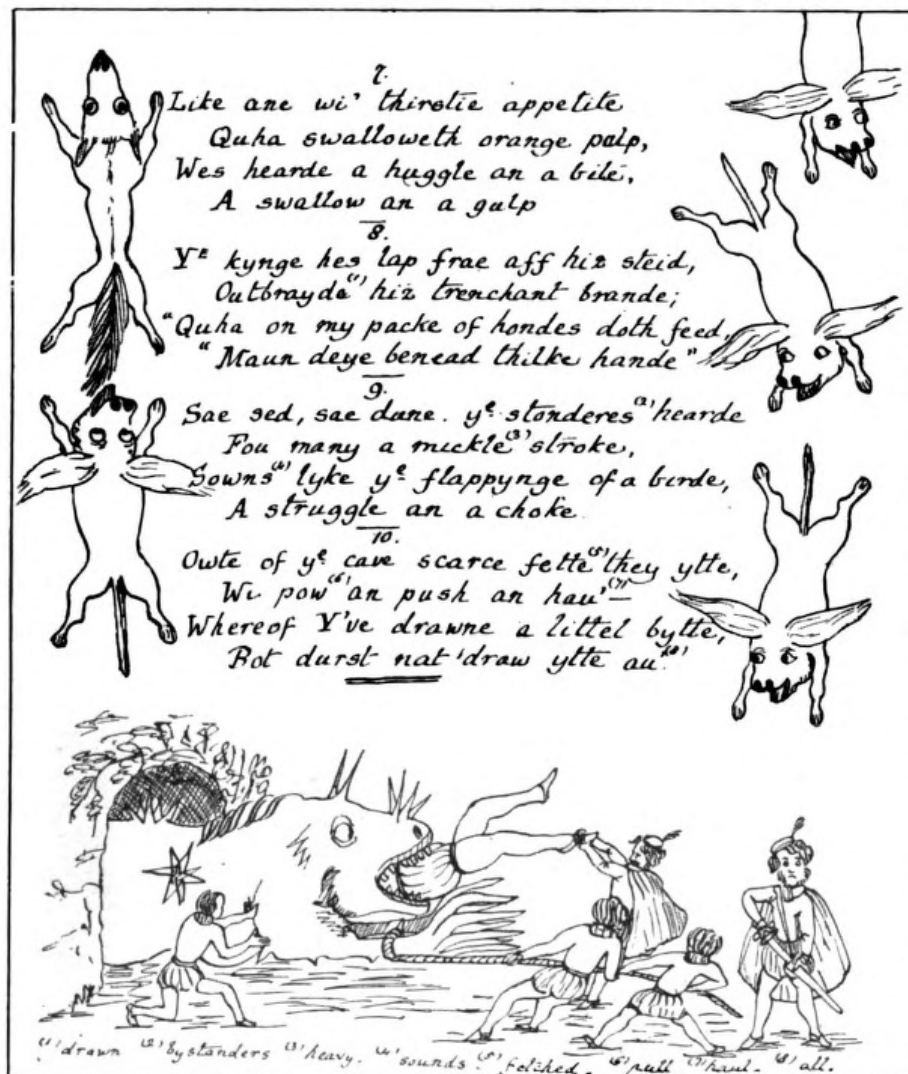 7.
Like ane wi' thirstie appetite
Quha swalloweth orange pulp,
Wes hearde a huggle an a bite,
A swallow an a gulp
8.
Yᵉ kynge hes lap frae aff hiz steid,
Outbrayde⁽¹⁾ hiz trenchant brande;
"Quha on my packe of hondes doth feed,
"Maun deye benead thilke hande"
9.
Sae sed, sae dune. yᵉ stonderes⁽²⁾ hearde
Fou many a mickle⁽³⁾ stroke,
Sowns⁽⁴⁾ lyke yᵉ flappynge of a birde,
A struggle an a choke
10.
Owte of yᵉ cave scarce fette⁽⁵⁾ they ytte,
Wi pow⁽⁶⁾ an push an hau'⁽⁷⁾—
Whereof Y've drawne a littel bytte,
Bot durst nat draw ytte au.⁽⁸⁾
⁽¹⁾ drawn ⁽²⁾ bystanders ⁽³⁾ heavy. ⁽⁴⁾ sounds. ⁽⁵⁾ fetched. ⁽⁶⁾ pull ⁽⁷⁾ haul. ⁽⁸⁾ all.